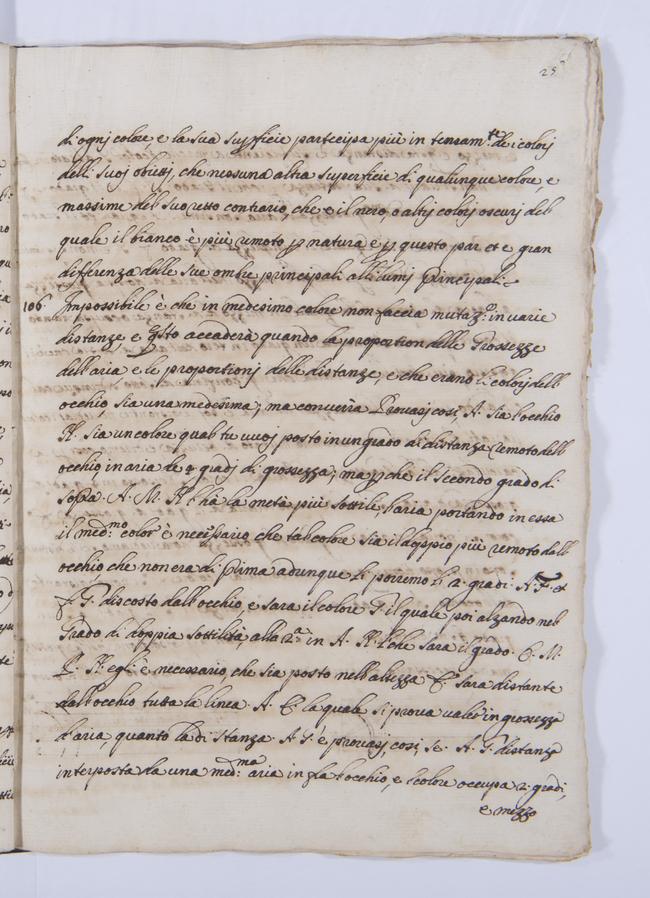 25
di ognj colore, e la sua supficie partecipa più in tensam.te de i colorj
delli suoj obietti, che nessuna altra superficie di qualunque colore, e
massime del suo retto contrario, che è il nero, o altrj colorj oscurj dal
quale il bianco è più remoto p natura e p questo par et e gran
differenza dalle sue ombre principali alli lumj principali.
106 Impossibile è che in medesimo colore non faccia mutaz.o in varie
distanze, e q.sto accaderà quando la proportion delle Grossezze
dell'aria, e le proportionj delle distanze, e che erano li colorj dall
occhio, sia una medesima; ma conversa Provasj così, A. sia l'occhio
H. sia un colore qual tu vuoj posto in un grado di distanza remoto dall
occhio in aria de 4 gradj di grossezza; ma p che il secondo grado di
sopra. A. M. H l'hà la metà più sottile, l'aria portando in essa
il med.mo color è necessario, che tal colore sia il doppio più remoto dall
occhio, che non era di prima adunque li porremo li 2. gradi. A. F. et
F. G. discosto dall'occhio, e sarà il colore G. il quale poi alzando nel
Grado di doppia sottilità, alla 2.a in A. H. l che sarà il grado. O. M.
P. H. egli è necessario, che sia posto nell'altezza E. sarà distante
dall'occhio tutta la linea A. E. la quale si prova valer in grossezza
d'aria, quanto la di stanza. A G. e provasj, così, se. A. G. distanza
interposta da una med.ma aria in fra l'occhio, e l colore occupa 2. gradi,
e mezzo